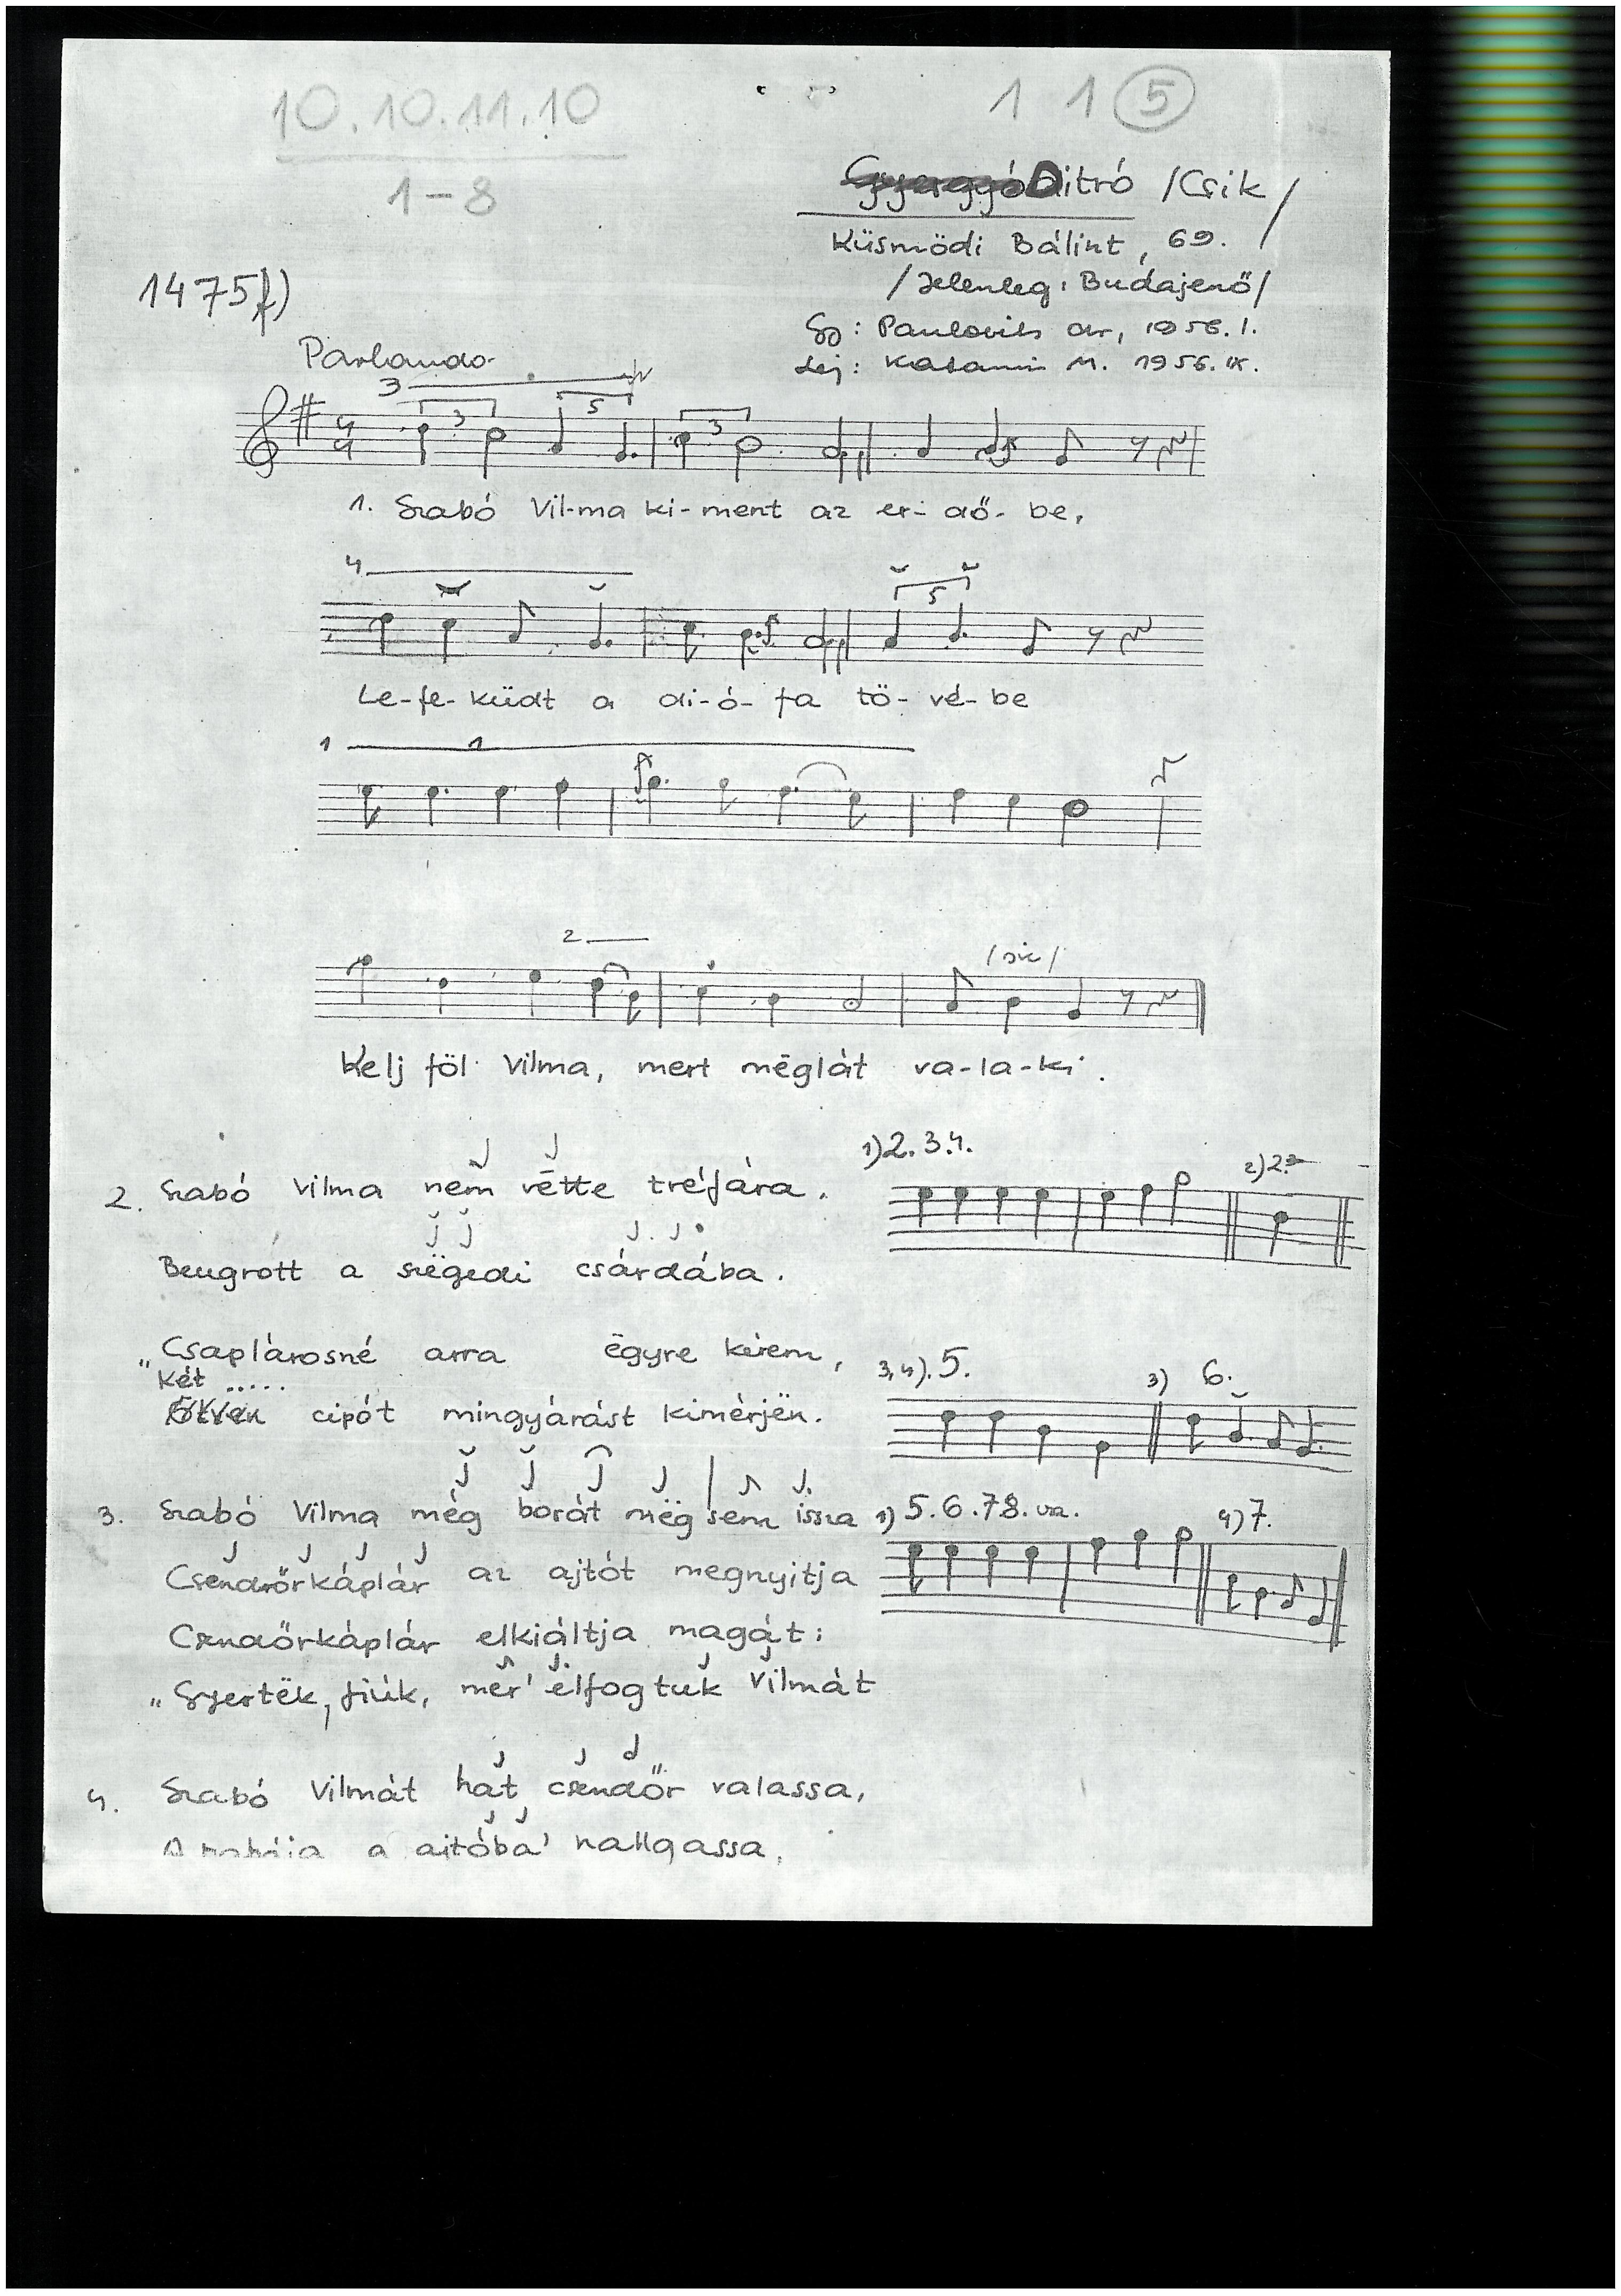 10.10.11.10
1-8
1 1 5
Ditró /Csik/
Küsmödi Bálint, 69.
/Jelenleg: Budajenő/
Gy: 1956. I.
Lej: M. 1956. IX.
1475f)
Parlando
1. Szabó Vil-ma ki-ment az er-dő-be,
Le-fe-küdt a di-ó-fa tö-vé-be
/sic/
Kelj föl Vilma, mert mëglát va-la-ki.
1) 2. 3. 4.
2) 2.
2. Szabó Vilma nem vëtte tréfára.
Beugrott a szëgedi csárdába.
„Csaplárosné arra ëgyre kérem,
Két .....
Ötven cipót mingyárást kimérjën.
3,4). 5.
3) 6.
3. Szabó Vilma még borát mëg sem issza
Csendőrkáplár az ajtót megnyitja
Csendőrkáplár elkiáltja magát:
„Gyertëk, fiúk, mer' elfogtuk Vilmát
1) 5. 6. 7 8. va.
4) 7.
4. Szabó Vilmát hat csendőr valassa,
a ajtóba' hallgassa,